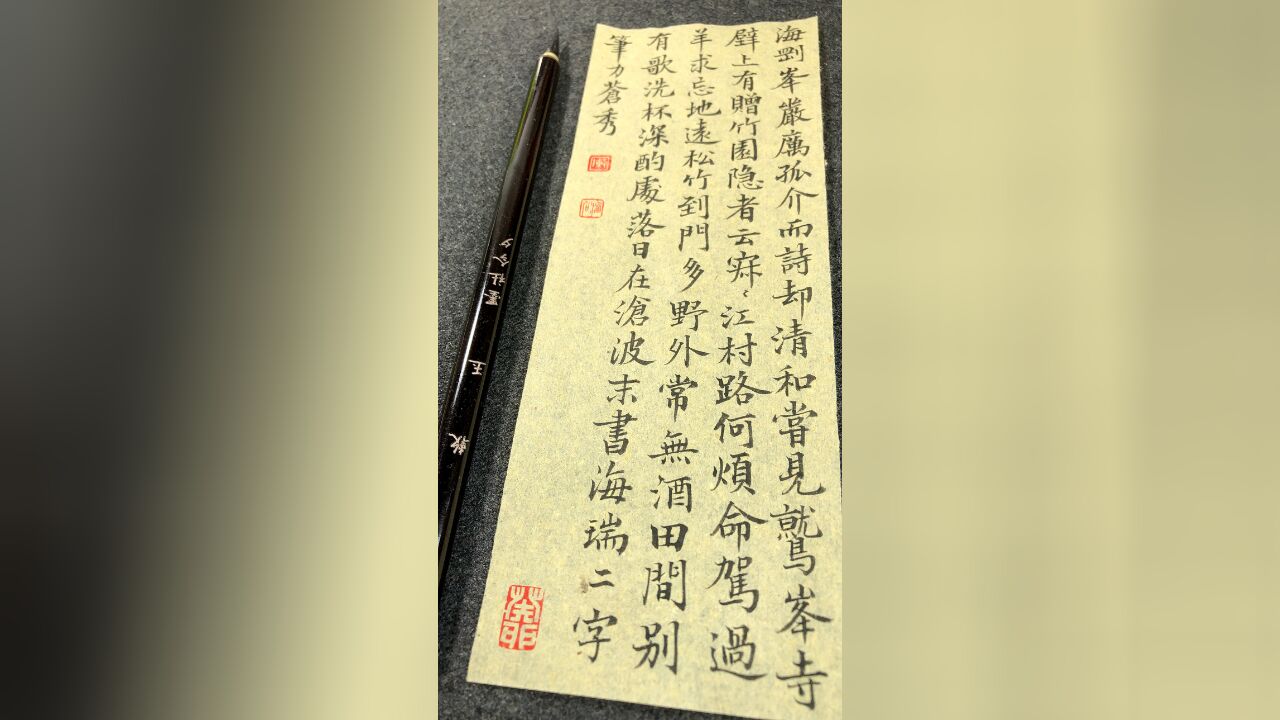 海剛峯嚴厲孤介而詩却清和嘗見鷲峯寺
壁上有贈竹園隐者云寂〻江村路何煩命駕過
羊求忘地遠松竹到門多野外常無酒田間别
有歌洗杯深酌處落日在滄波末書海瑞二字
筆力蒼秀